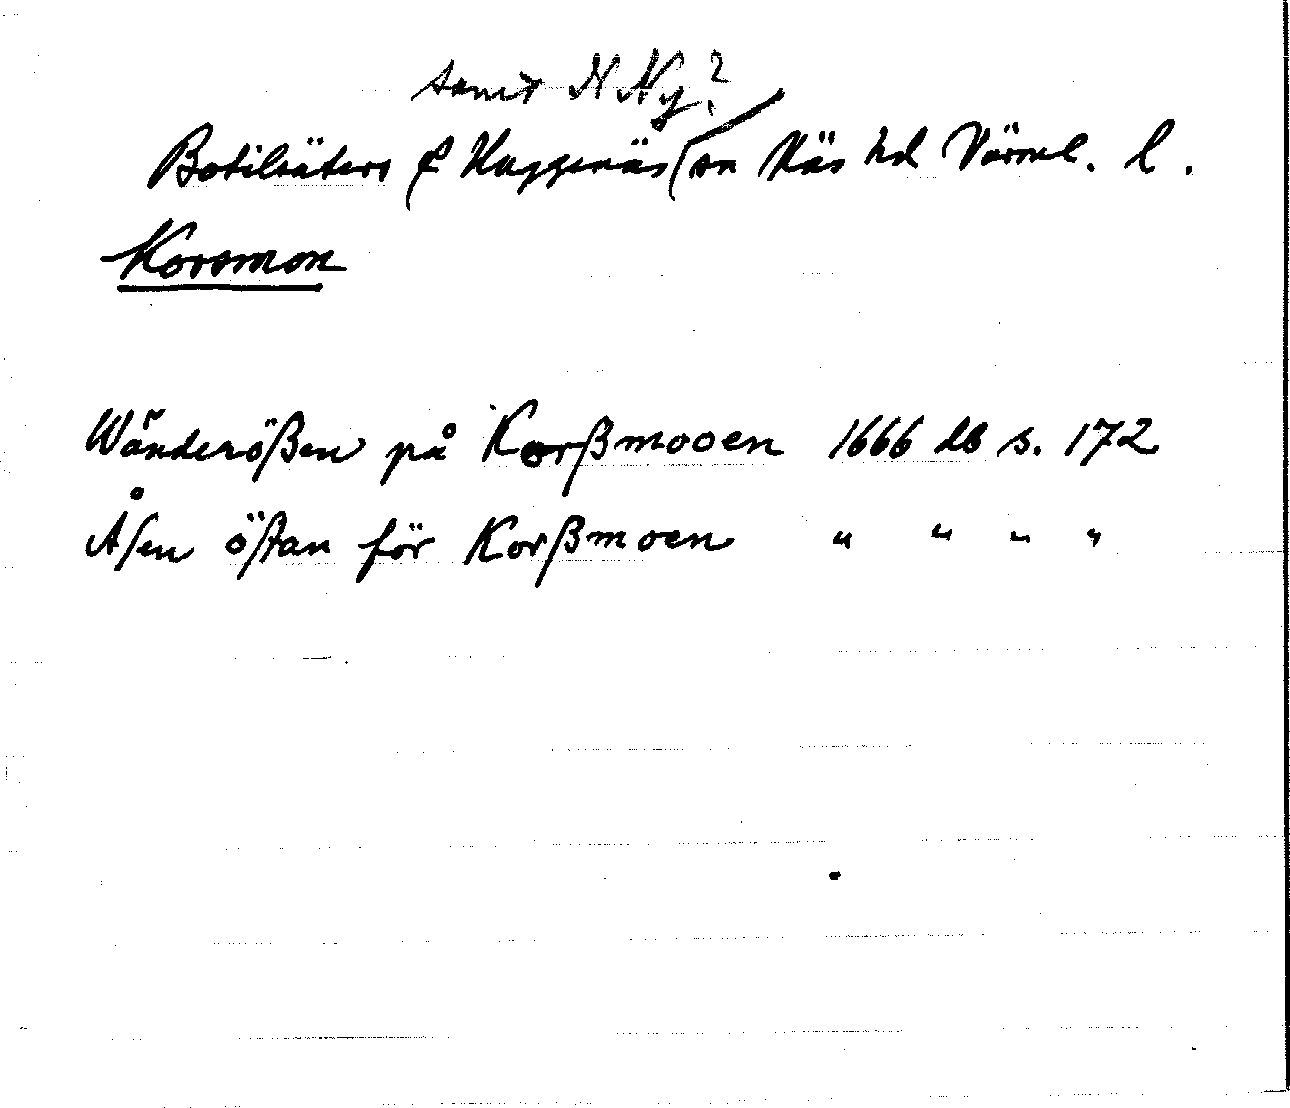 samt N Ny?
Botilsäters & Huggenäs sn Näs hd Värml. l.
Korsmon
Wänderößen på Korßmooen 1666 db s. 172
Åsen östan för Korßmoen " " " "